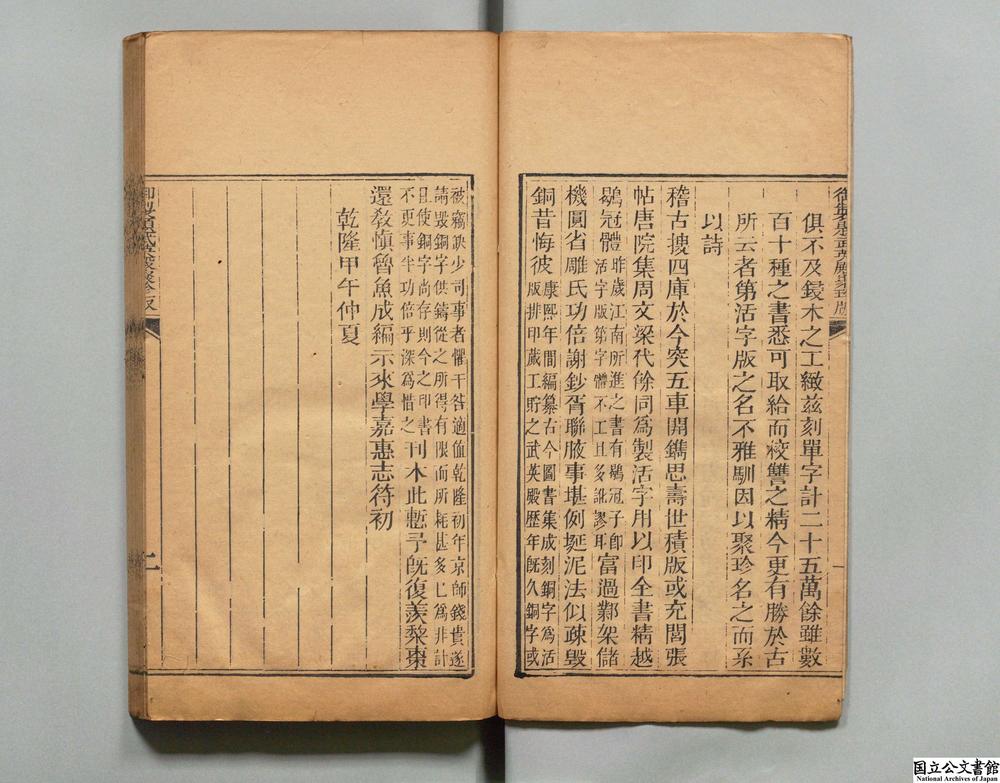 御製題武英殿聚珍版
俱不及鋟木之工緻茲刻單字計二十五萬餘雖數
百十種之書悉可取給而校讐之精今更有勝於古
所云者第活字版之名不雅馴因以聚珍名之而系
以詩
稽古搜四庫於今突五車開鐫思壽世積版或充閭張
帖唐院集周文梁代餘同爲製活字用以印全書精越
鶡冠體
昨歲江南所進之書有鶡冠子卽
活字版第字體不工且多訛謬耳
富過鄴架儲
機圓省雕氏功倍謝鈔胥聯腋事堪例埏泥法似疎毀
銅昔悔彼
康熙年間編纂古今圖書集成刻銅字爲活
版排印蕆工貯之武英殿歷年旣久銅字或
被竊缺少司事者懼干咎適值乾隆初年京師錢貴遂
請毀銅字供鑄從之所得有限而所耗甚多已爲非計
且使銅字尚存則今之印書
不更事半功倍乎深爲惜之
刊木此慙予旣復羨棃棗
還教愼魯魚成編示來學嘉惠志符初
乾隆甲午仲夏
国立公文書館
National Archives of Japan